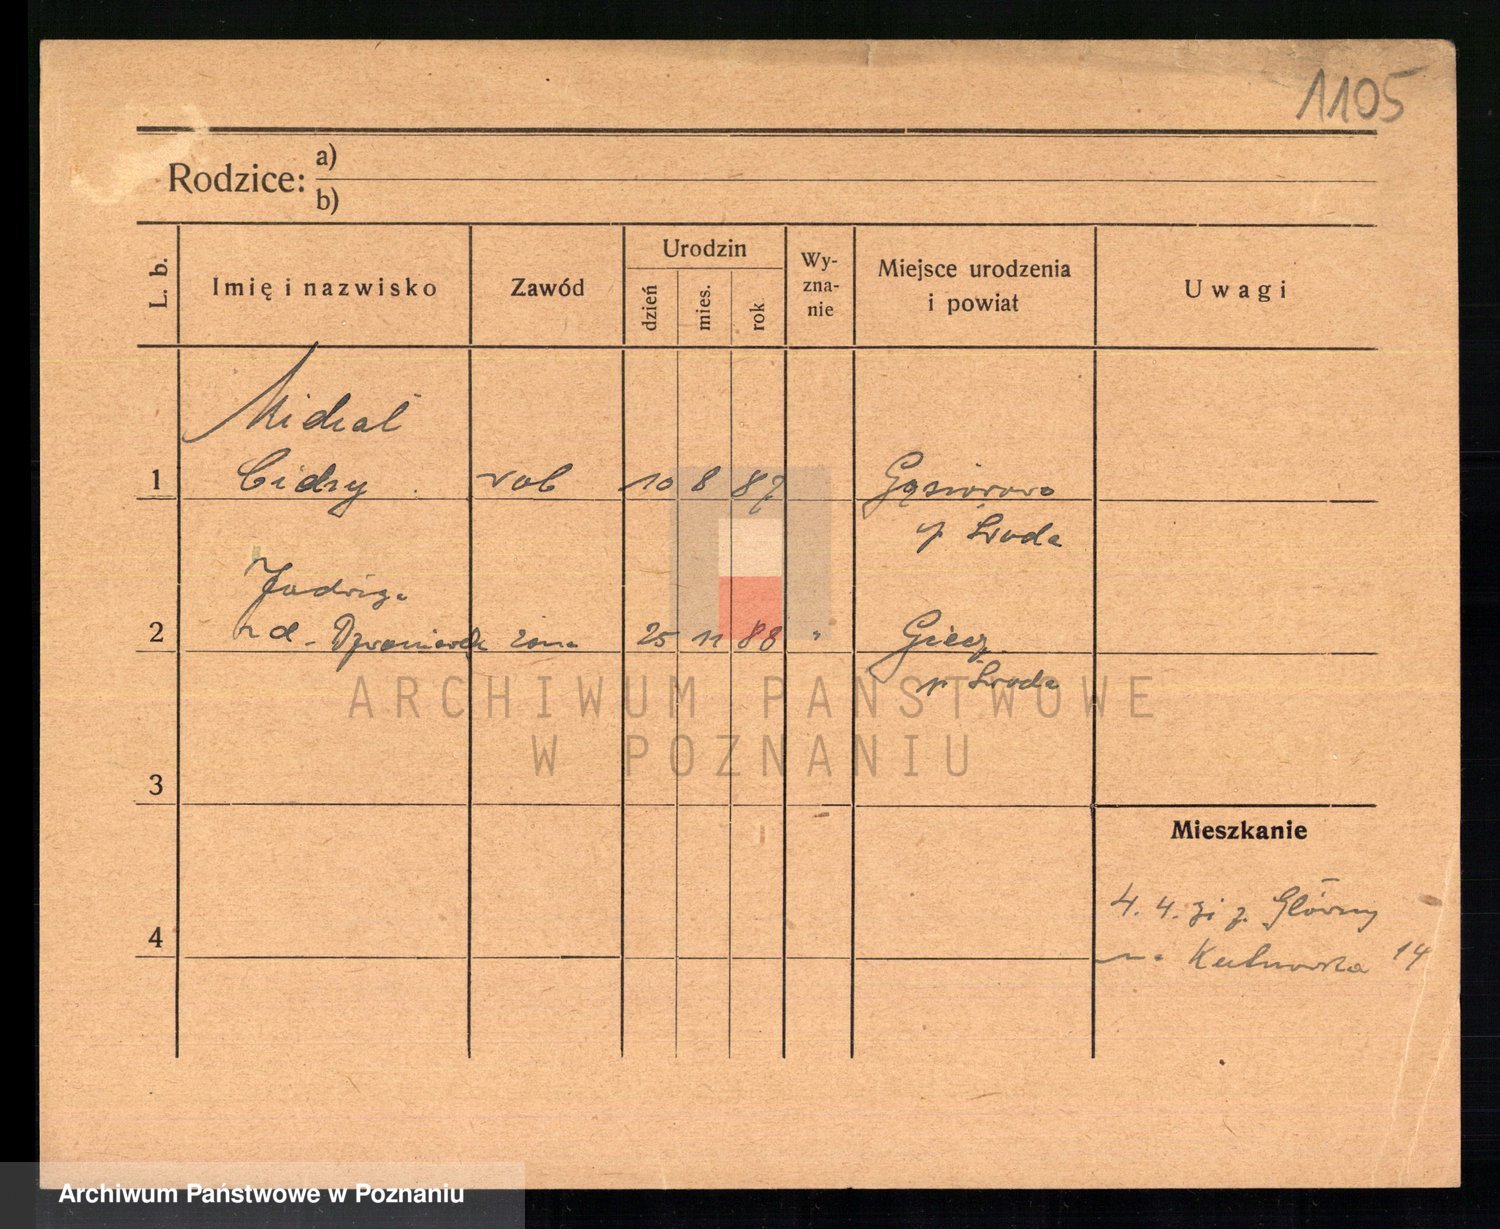 1105
Rodzice: a)
b)
L. b. Imię i nazwisko Zawód Urodzin dzień mies. rok Wy-zna-nie Miejsce urodzenia i powiat Uwagi
Michał
1 Cichy rob 10 8 87 Gąsiorowo
p Środa
Jadwiga
2 żona 25 11 88 " Giecz
p Środa
ARCHIWUM PAŃSTWOWE
W POZNANIU
3
Mieszkanie
4. 4. z. Główny
4
na 14
Archiwum Państwowe w Poznaniu